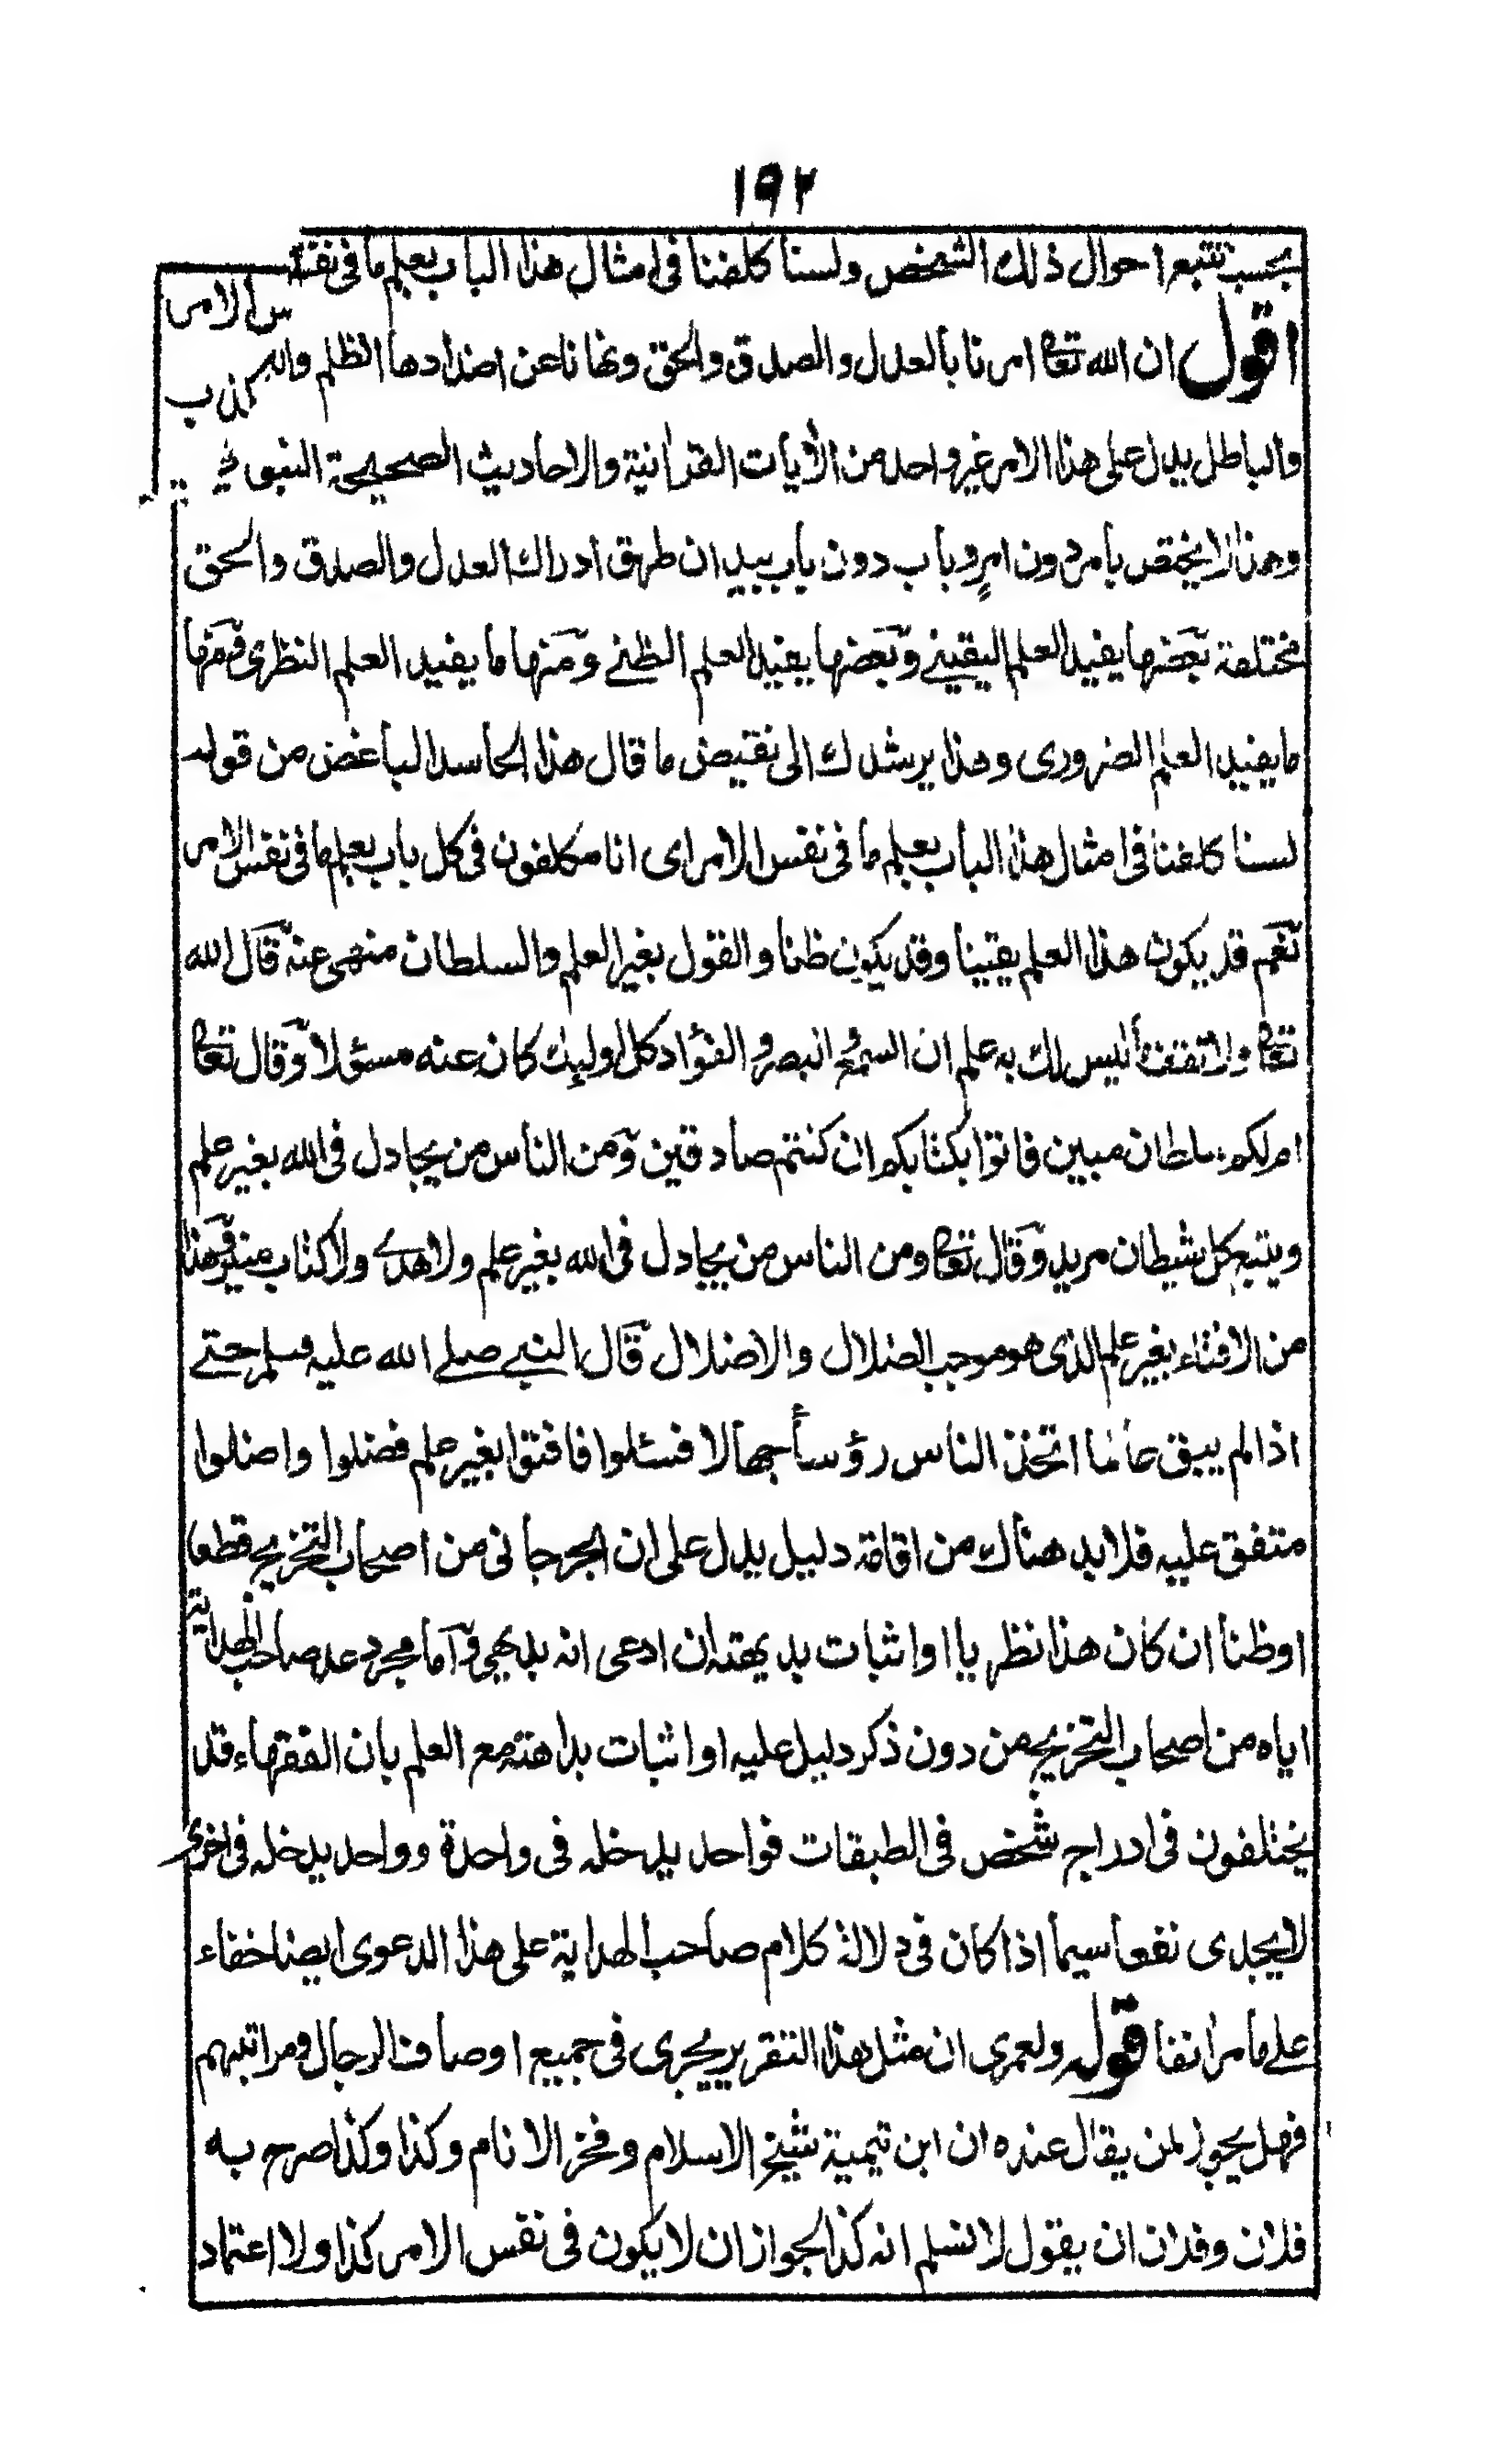 ١٩٢
بحسب تتبع احوال ذلك الشخص ولسنا كلفنا فى امثال هذا الباب بعلم ما فى نفس الامر
اقول ان الله تعا امرنا بالعدل والصدق والحق ونهانا عن اضدادها الظلم والكذب
والباطل يدل على هذا الامر غير واحد من الأيات القرانية والاحاديث الصحيحة النبوية
وهذا لا يختص بامر دون امرٍ وباب دون باب بيد ان طرق ادراك العدل والصدق والحق
مختلفة بعضها يفيد العلم اليقينے وبعضها يفيد العلم الظنے ومنها ما يفيد العلم النظرى ومنها
ما يفيد العلم الضرورى وهذا يرشدك الى نقيض ما قال هذا الحاسد الباغض من قوله
لسنا كلفنا فى امثال هذا الباب بعلم ما فى نفس الامر اى انا مكلفون فى كل باب بعلم ما فى نفس الامر
نعم قد يكون هذا العلم يقينا وقد يكون ظنا والقول بغير العلم والسلطان منهى عنه قال الله
تعا ولا تقف ما ليس لك به علم ان السمع والبصر والفؤاد كل اولئك كان عنه مسئولا وقال تعا
ام لكم سلطان مبين فاتوا بكتابكم ان كنتم صادقين ومن الناس من يجادل فى الله بغير علم
ويتبع كل شيطان مريد وقال تعا ومن الناس من يجادل فى الله بغير علم ولا هدے ولا كتاب منير وهذا
من الافتاء بغير علم الذى هو موجب الضلال والاضلال قال النبے صلے الله عليه وسلم حتے
اذا لم يبق عالما اتخذ الناس رؤسأ جهالا فسئلوا فافتوا بغير علم فضلوا واضلوا
متفق عليه فلا بد هناك من اقامة دليل يدل على ان الجرجانى من اصحاب التخريج قطعا
او ظنا ان كان هذا نظريا او اثبات بديهته ان ادعى انه بديهى واما مجرد عد صاحب الهداية
اياه من اصحاب التخريج من دون ذكر دليل عليه او اثبات بداهته مع العلم بان الفقهاء قد
يختلفون فى ادراج شخص فى الطبقات فواحد يدخله فى واحدة وواحد يدخله فى اخرى
لا يجدى نفعا سيما اذا كان فى دلالة كلام صاحب الهداية على هذا الدعوى ايضا خفاء
علے ما مر انفا قوله ولعمرى ان مثل هذا التقرير يجرى فى جميع اوصاف الرجال ومراتبهم
فهل يجوز لمن يقال عنده ان ابن تيمية شيخ الاسلام وفخر الانام وكذا وكذا صرح به
فلان وفلان ان يقول لا نسلم انه كذا لجواز ان لا يكون فى نفس الامر كذا ولا اعتماد